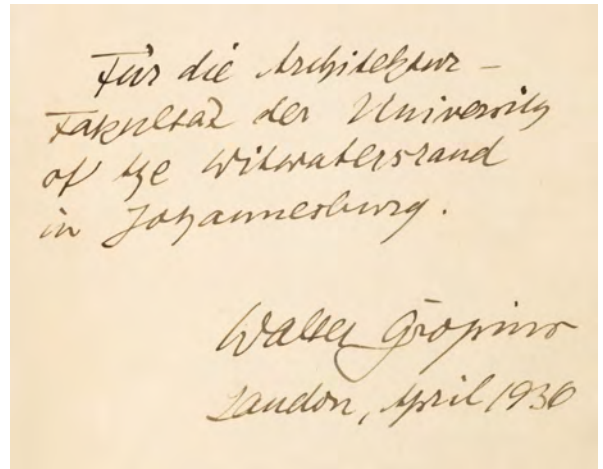 Für die Architektur-
Fakultät der University
of the Witwatersrand
in Johannesburg.
Walter Gropius
London, April 1936